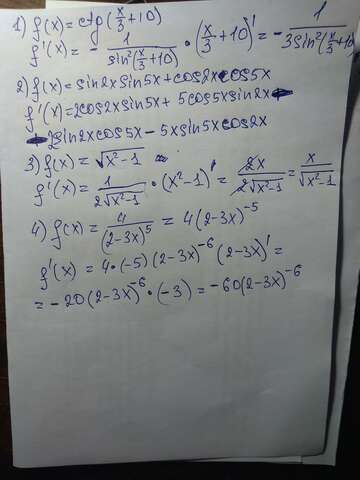 1) f(x) = ctg(x/3 + 10)
f'(x) = - 1/sin²(x/3 + 10) · (x/3 + 10)' = - 1/3sin²(x/3 + 10)
2) f(x) = sin2x sin5x + cos2x cos5x
f'(x) = 2cos2x sin5x + 5cos5x sin2x -
- 2sin2x cos5x - 5x sin5x cos2x
3) f(x) = √(x²-1)
f'(x) = 1/2√(x²-1) · (x²-1)' = 2x/2√(x²-1) = x/√(x²-1)
4) f(x) = 4/(2-3x)⁵ = 4(2-3x)⁻⁵
f'(x) = 4·(-5)(2-3x)⁻⁶ (2-3x)' =
= -20(2-3x)⁻⁶ · (-3) = -60(2-3x)⁻⁶